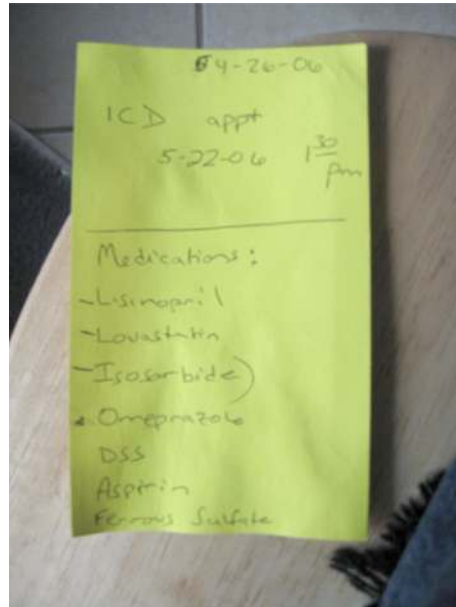 4-26-06
ICD appt
5-22-06 1 30 pm
Medications:
- Lisinopril
- Lovastatin
- Isosorbide)
Omeprazole
DSS
Aspirin
Ferrous Sulfate